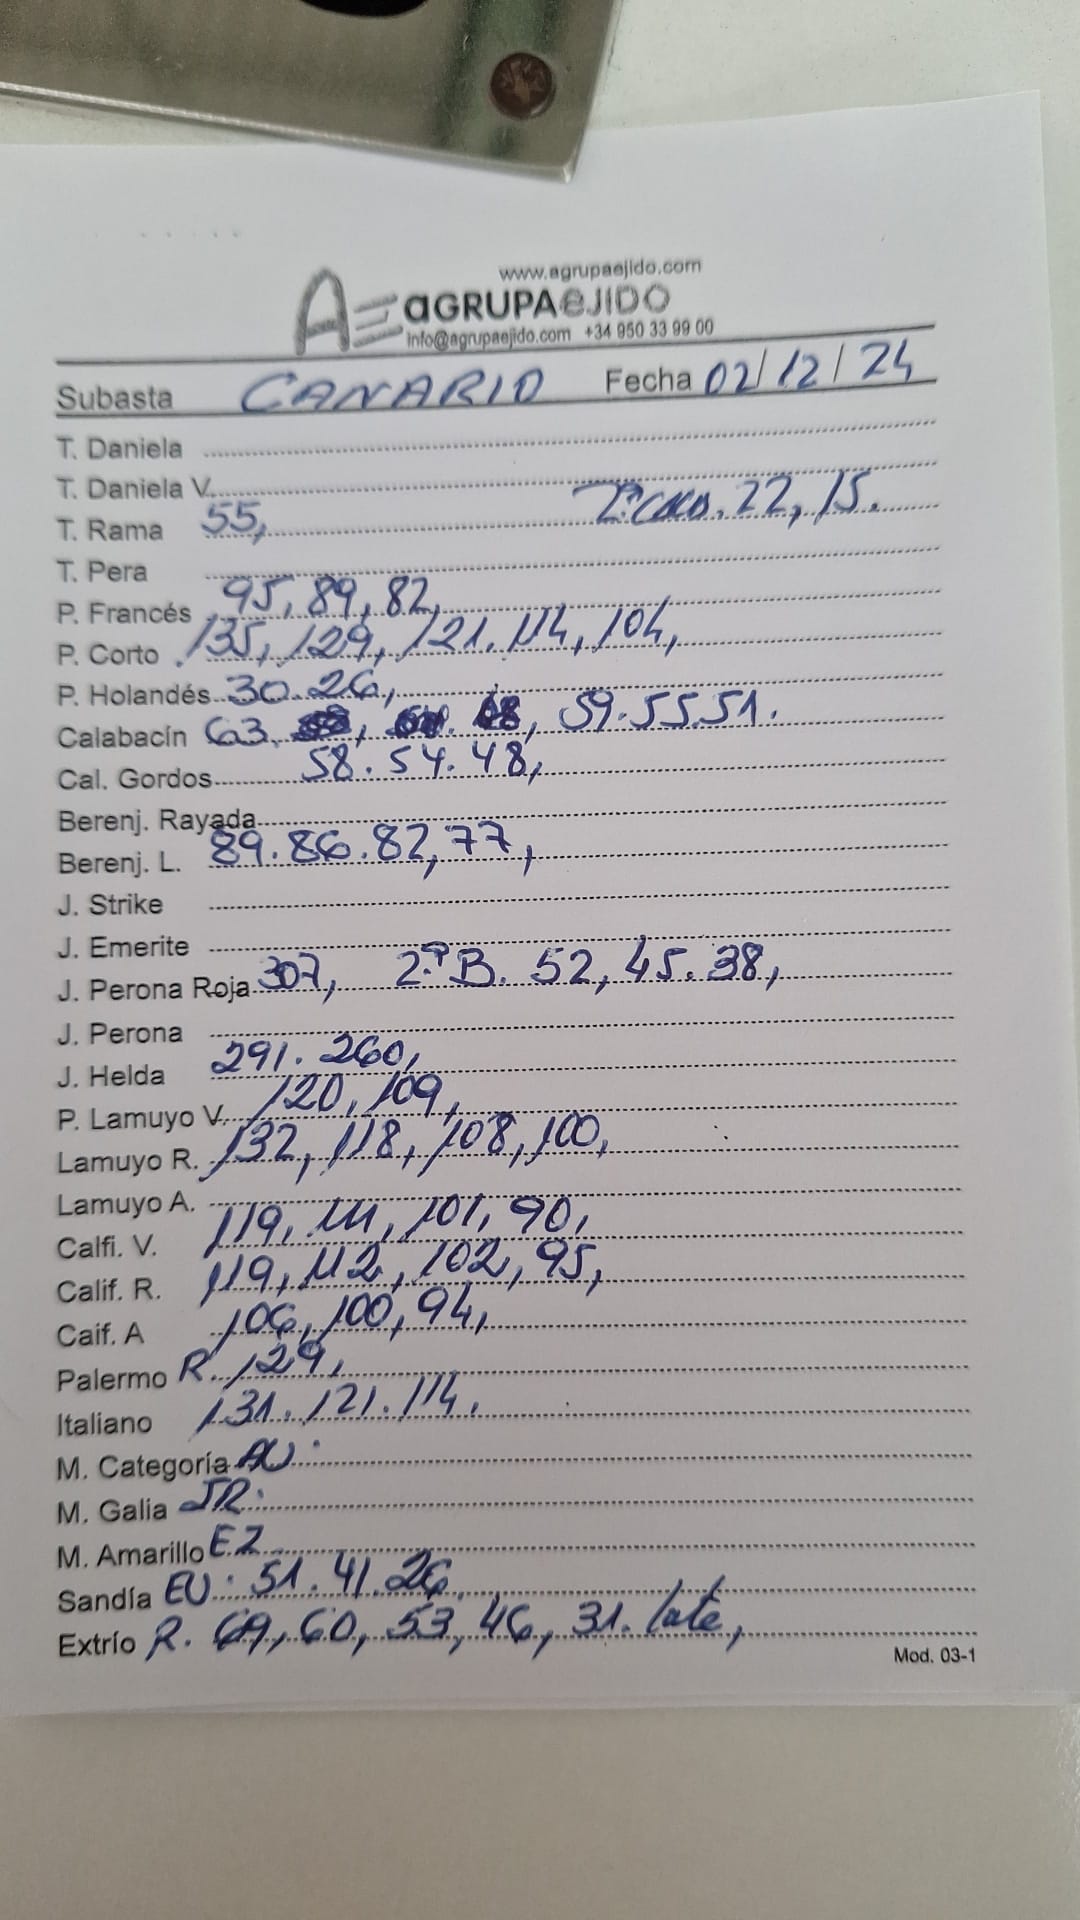 www.agrupaejido.com
AE aGRUPAeJIDO
info@agrupaejido.com +34 950 33 99 00
Subasta CANARIO Fecha 02/12/24
T. Daniela
T. Daniela V.
T. Rama 55, 22, 15.
T. Pera
P. Francés 95, 89, 82,
P. Corto 135, 129, 121. 114, 104,
P. Holandés 30. 26,
Calabacín 63. 59. 55. 51.
Cal. Gordos 58. 54. 48,
Berenj. Rayada
Berenj. L. 89. 86. 82, 77,
J. Strike
J. Emerite
J. Perona Roja 307, 2ª B. 52, 45. 38,
J. Perona
J. Helda 291. 260,
P. Lamuyo V. 120, 109,
Lamuyo R. 132, 118, 108, 100,
Lamuyo A.
Calfi. V. 119, 111, 101, 90,
Calif. R. 119, 112, 102, 95,
Caif. A 106, 100, 94,
Palermo R. 129,
Italiano 131. 121. 114.
M. Categoría
M. Galia
M. Amarillo EZ
Sandía EU. 51. 41. 26,
Extrío R. 69, 60, 53, 46, 31. late,
Mod. 03-1